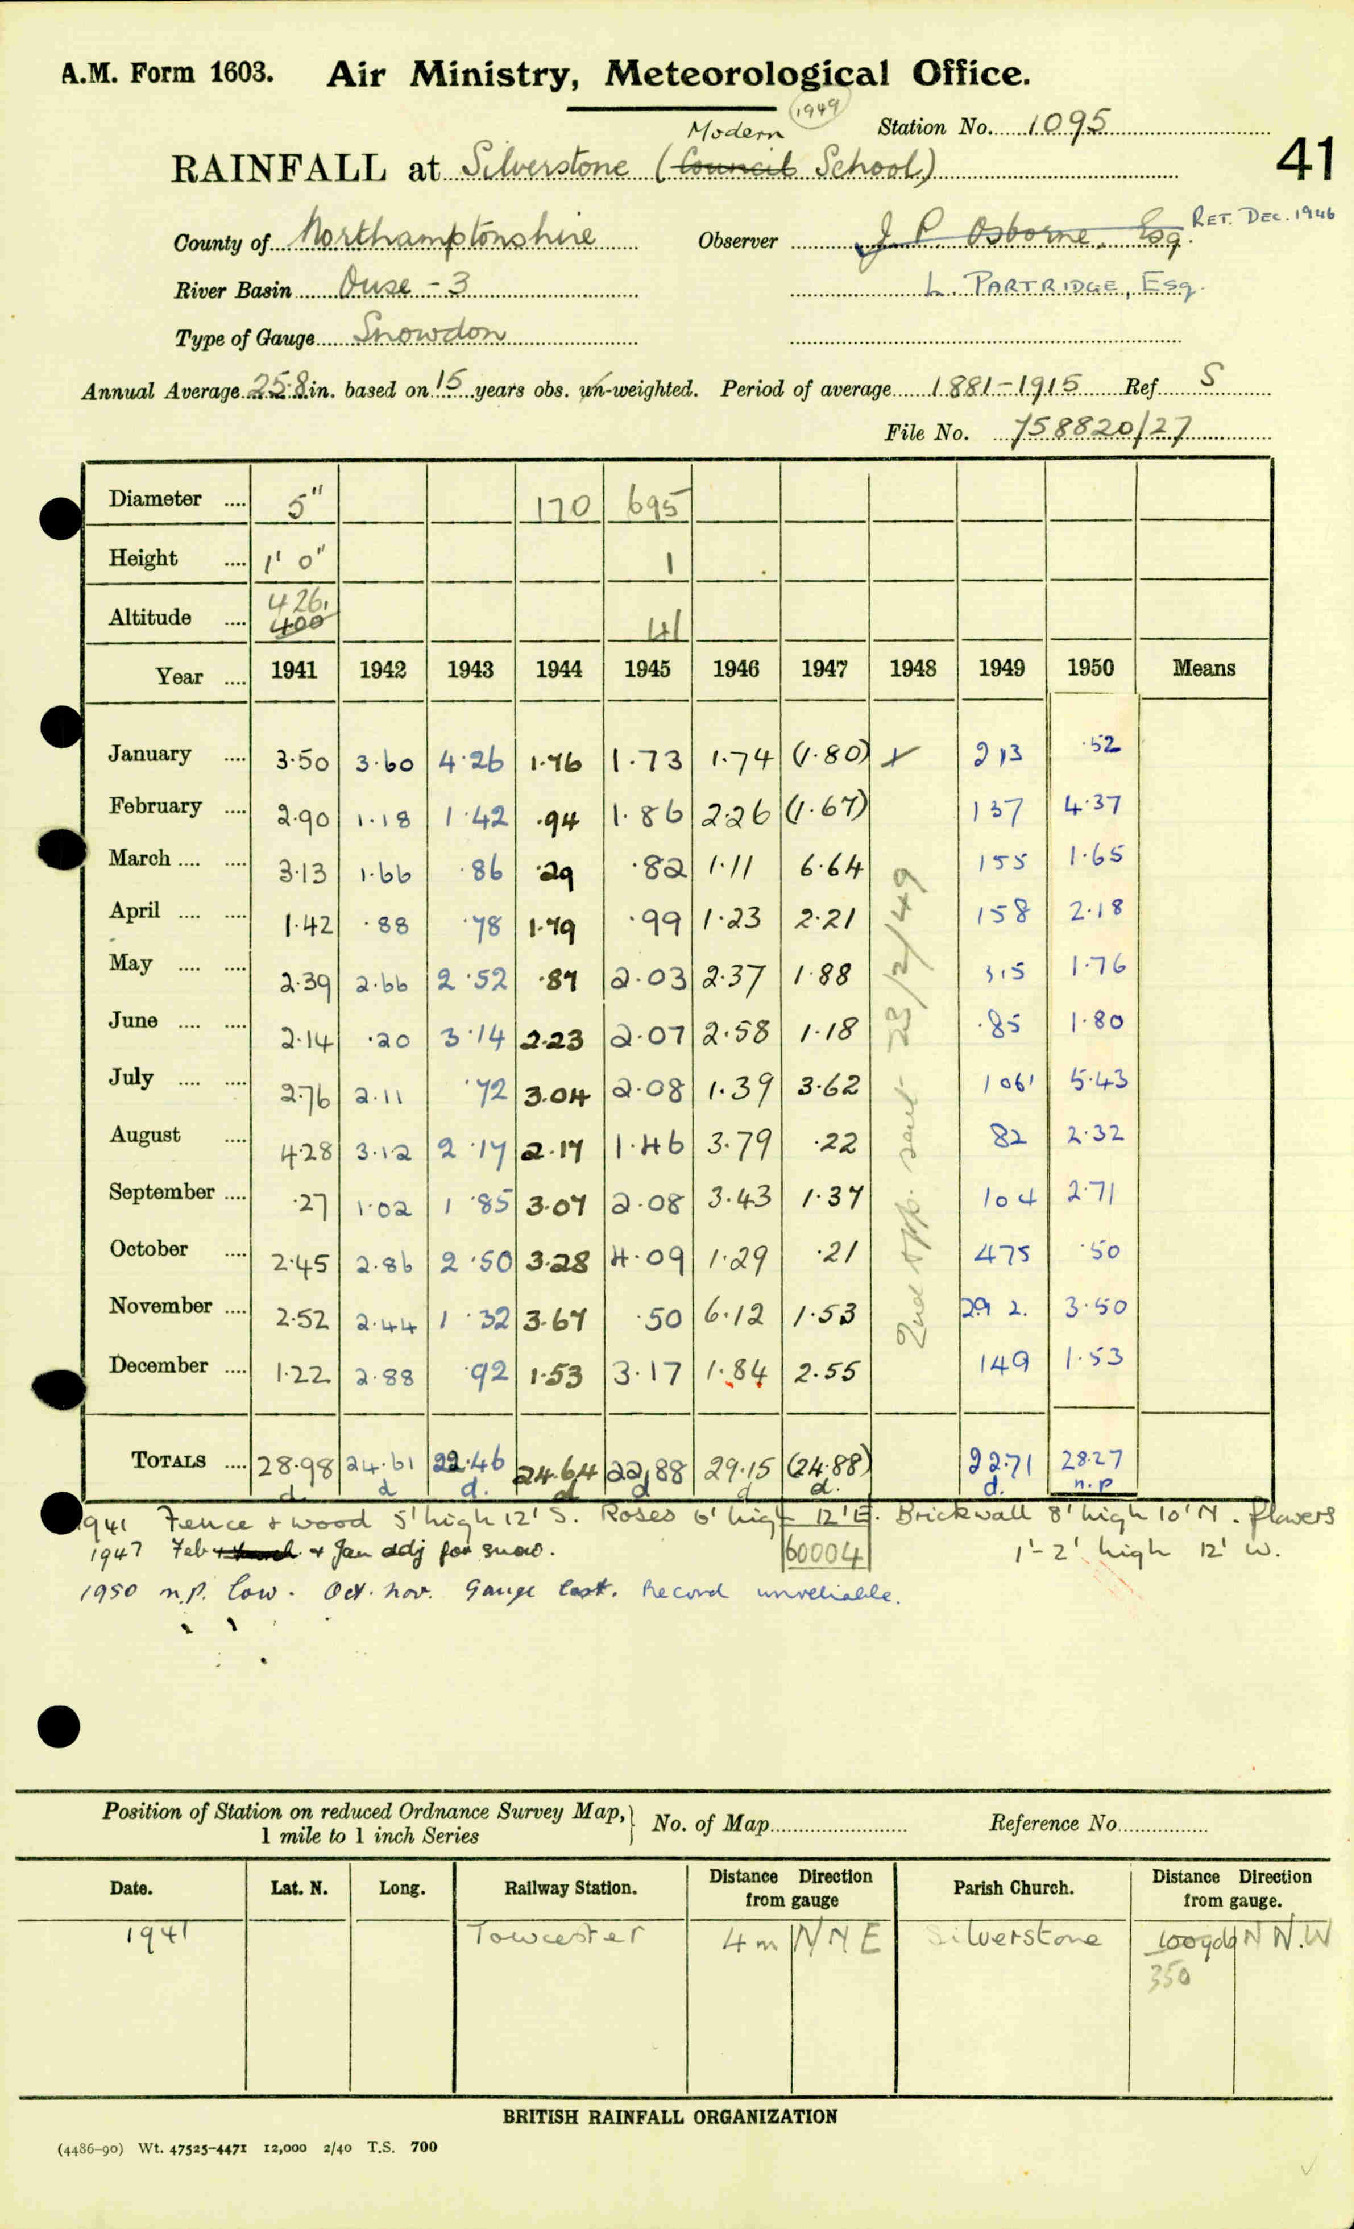 A.M. Form 1603. Air Ministry, Meteorological Office.
1949
Modern
Station No. 1095
41
RAINFALL at Silverstone (Council School)
RET. DEC. 1946
County of Northamptonshire Observer J. P. Osborne, Esq.
River Basin Ouse - 3 L. PARTRIDGE, Esq.
Type of Gauge Snowdon
Annual Average 25.8 in. based on 15 years obs. un-weighted. Period of average 1881-1915 Ref S
File No. 758820/27
Diameter .... 5" 170 695
Height .... 1' 0" 1
426.
Altitude .... 400 41
Year .... 1941 1942 1943 1944 1945 1946 1947 1948 1949 1950 Means
January .... 3.50 3.60 4.26 1.76 1.73 1.74 (1.80) x 213 .52
February .... 2.90 1.18 1.42 .94 1.86 2.26 (1.67) 137 4.37
March .... .... 3.13 1.66 .86 .29 .82 1.11 6.64 155 1.65
April .... .... 1.42 .88 .78 1.79 .99 1.23 2.21 158 2.18
May .... .... 2.39 2.66 2.52 .87 2.03 2.37 1.88 315 1.76
June .... .... 2.14 .20 3.14 2.23 2.07 2.58 1.18 .85 1.80
July .... .... 2.76 2.11 .72 3.04 2.08 1.39 3.62 106 5.43
August .... 4.28 3.12 2.17 2.17 1.46 3.79 .22 82 2.32
September .... .27 1.02 1.85 3.07 2.08 3.43 1.37 104 2.71
October .... 2.45 2.86 2.50 3.28 4.09 1.29 .21 475 .50
November .... 2.52 2.44 1.32 3.67 .50 6.12 1.53 292. 3.50
December .... 1.22 2.88 .92 1.53 3.17 1.84 2.55 149 1.53
2nd opp. sent 23/2/49
TOTALS .... 28.98 24.61 22.46 24.64 22.88 29.15 (24.88) 2271 2827
d. d d. d d d d. d. n.p
1941 Fence + wood 5' high 12' S. Roses 6' high 12' E. Brickwall 8' high 10' N. flowers
1947 Feb + March + Jan adj for snow. 60004 1'-2' high 12' W.
1950 n.p. low. Oct. Nov. Gauge lost. Record unreliable.
Position of Station on reduced Ordnance Survey Map, } No. of Map Reference No.
1 mile to 1 inch Series
Date. Lat. N. Long. Railway Station. Distance Direction from gauge Parish Church. Distance Direction from gauge.
1941 Towcester 4m NNE Silverstone 100yds N N.W
350
BRITISH RAINFALL ORGANIZATION
(4486-90) Wt. 47525-4471 12,000 2/40 T.S. 700